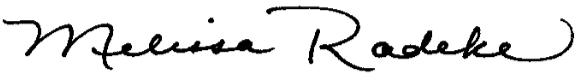 Melissa Radeke